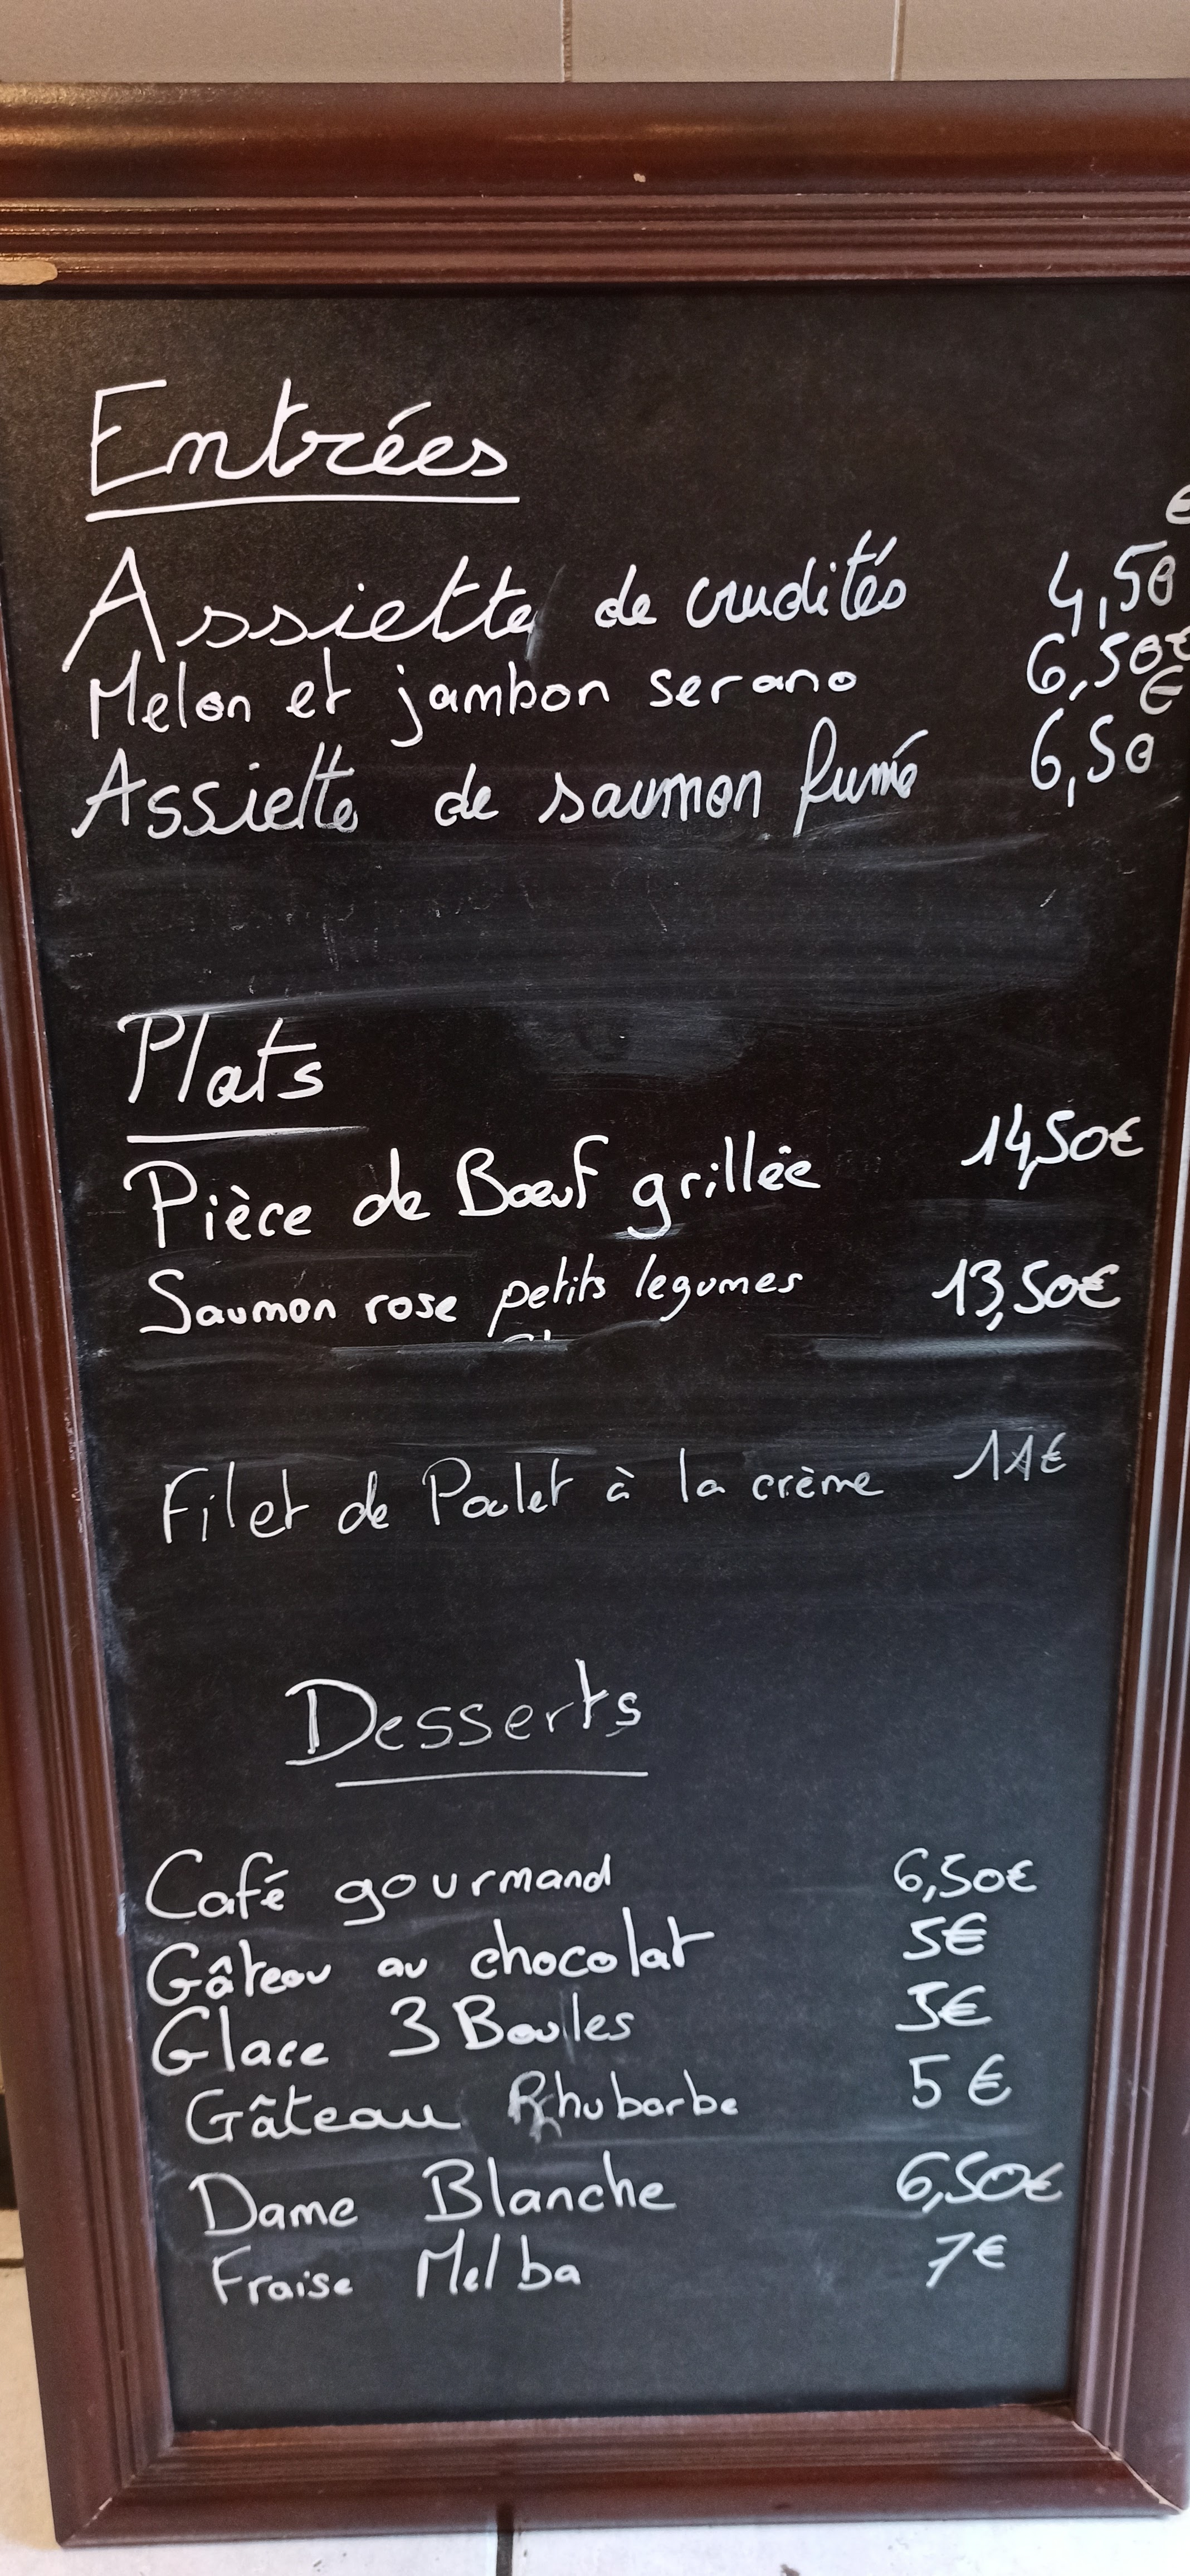 Entrées
Assiette de crudités 4,50 €
Melon et jambon serano 6,50€
Assiette de saumon fumé 6,50 €
Plats
Pièce de Bœuf grillée 14,50€
Saumon rose petits legumes 13,50€
Filet de Poulet à la crème 11€
Desserts
Café gourmand 6,50€
Gâteau au chocolat 5€
Glace 3 Boules 5€
Gâteau Rhubarbe 5€
Dame Blanche 6,50€
Fraise Melba 7€